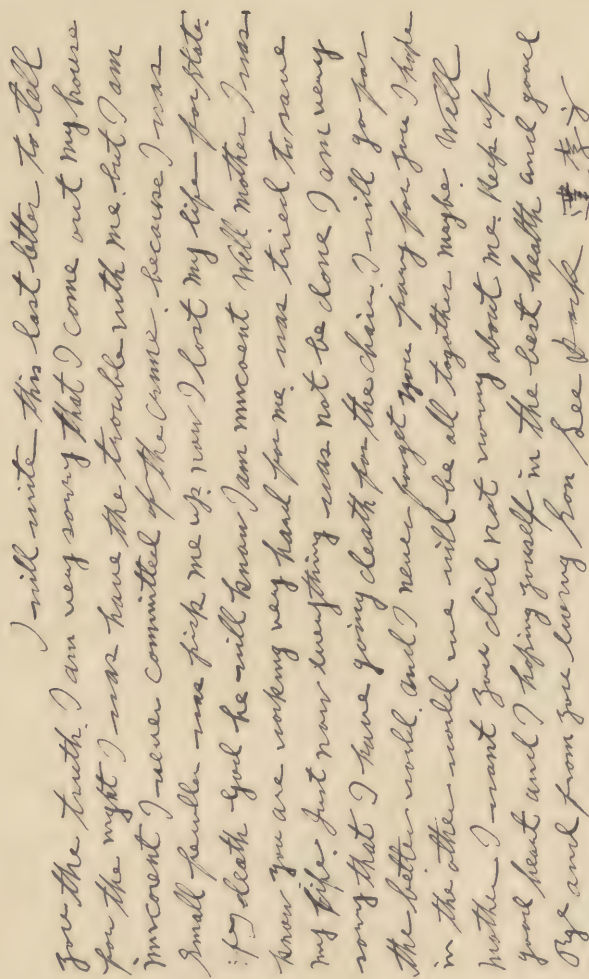 I will write this last letter to tell
you the truth. I am very sorry that I come out my house
for the night I was have the trouble with me but I am
inncoent I never committed of the crime. because I was
small feuller was pick me up. now I lost my life for state.
if I death God he will know I am inncoent Well mother I was
know you are working very hard for me. was tried to save
my life. Just now everything was not be done I am very
sorry that I have going death for the chair. I will go for
the better world. and I never forget you. pary for you I hope
in the other world we will be all together maybe. Well
mother I want you did not worry about me. Keep up
good heart and I hoping yourself in the best health and good
Bye and from your loveing Son. Lee